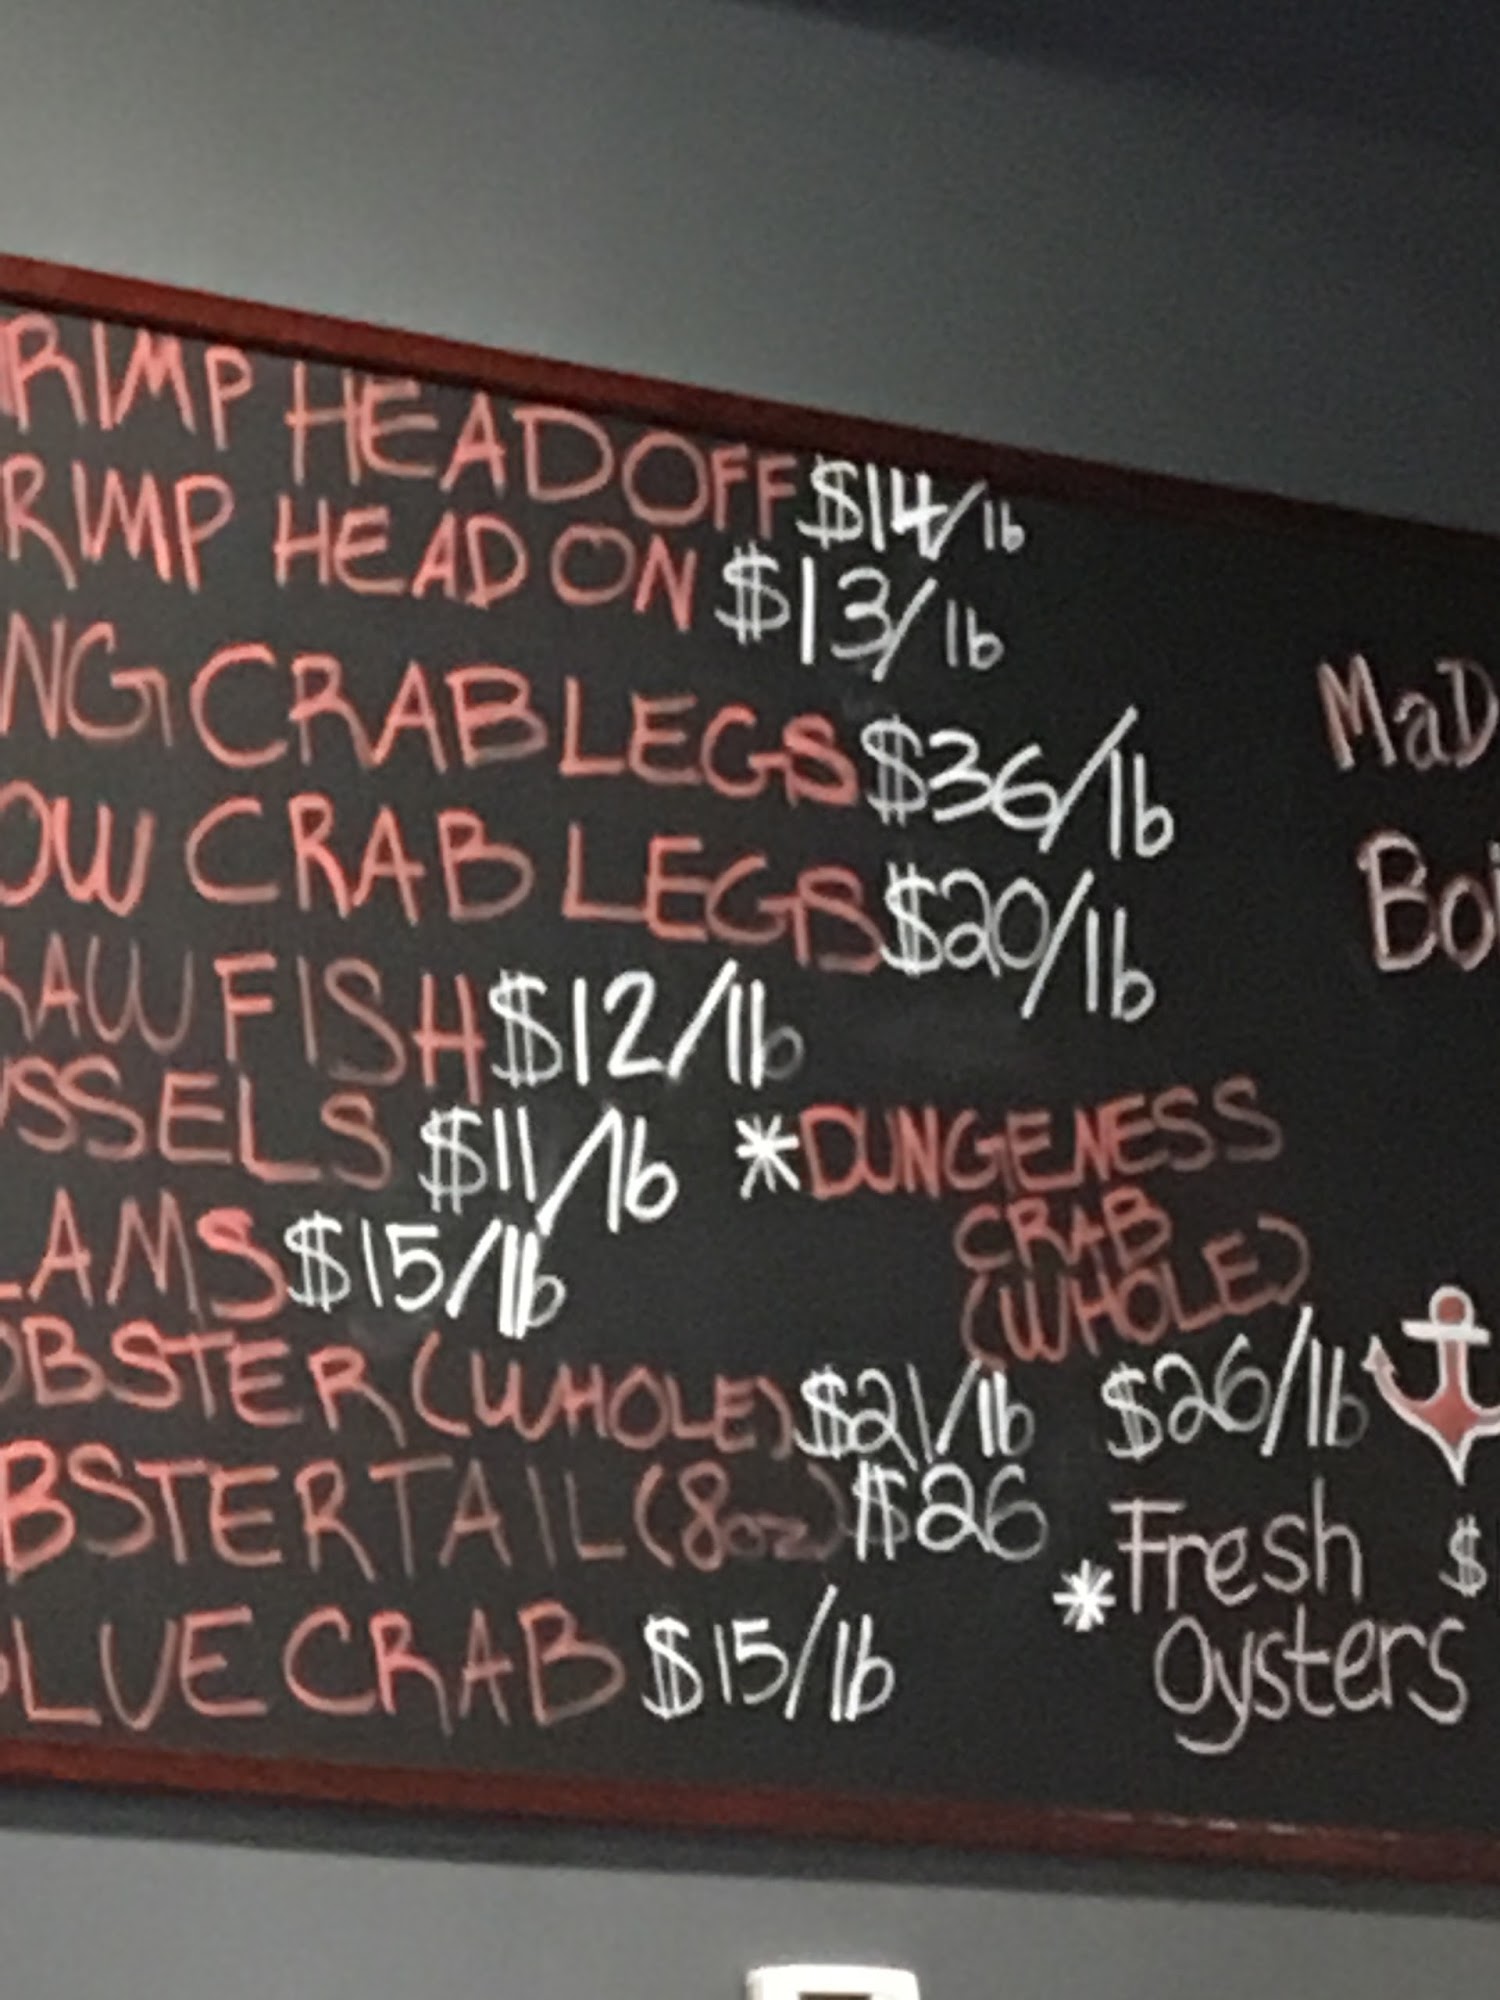 RIMP HEAD OFF $14/lb
RIMP HEAD ON $13/lb
NG CRAB LEGS $36/lb
OW CRAB LEGS $20/lb
RAWFISH $12/lb
USSELS $11/lb
LAMS $15/lb
OBSTER (WHOLE) $21/lb
BSTER TAIL (8oz) $26
BLUE CRAB $15/lb
*DUNGENESS
CRAB
(WHOLE)
$26/lb
*Fresh $
Oysters
MaD
Boi